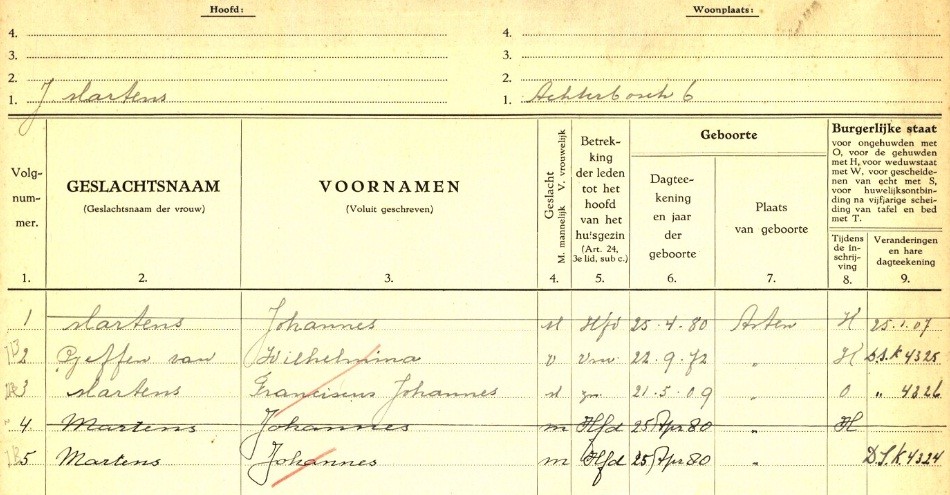 Hoofd: Woonplaats:
4. 4.
3. 3.
2. 2.
1. J Martens 1. Achterbosch 6
Volg-nummer. GESLACHTSNAAM (Geslachtsnaam der vrouw) VOORNAMEN (Voluit geschreven) Geslacht M. mannelijk V. vrouwelijk Betrekking der leden tot het hoofd van het huisgezin (Art. 24, 3e lid, sub c.) Geboorte Dagteekening en jaar der geboorte Plaats van geboorte Burgerlijke staat
voor ongehuwden met
O, voor de gehuwden
met H, voor weduwstaat
met W, voor gescheidenen van echt met S,
voor huwelijksontbinding na vijfjarige scheiding van tafel en bed
met T.
Tijdens de inschrijving Veranderingen en hare dagteekening
1. 2. 3. 4. 5. 6. 7. 8. 9.
1 Martens Johannes M Hfd 25.4.80 Asten H 25.1.07
2 Geffen van Wilhelmina v vrw 22.9.72 " H D.S.K 4325
3 Martens Franciscus Johannes M zn 21.5.09 " O " 4326
4 Martens Johannes m Hfd 25 Apr 80 " H
5 Martens Johannes m Hfd 25 Apr 80 " D.S.K 4324